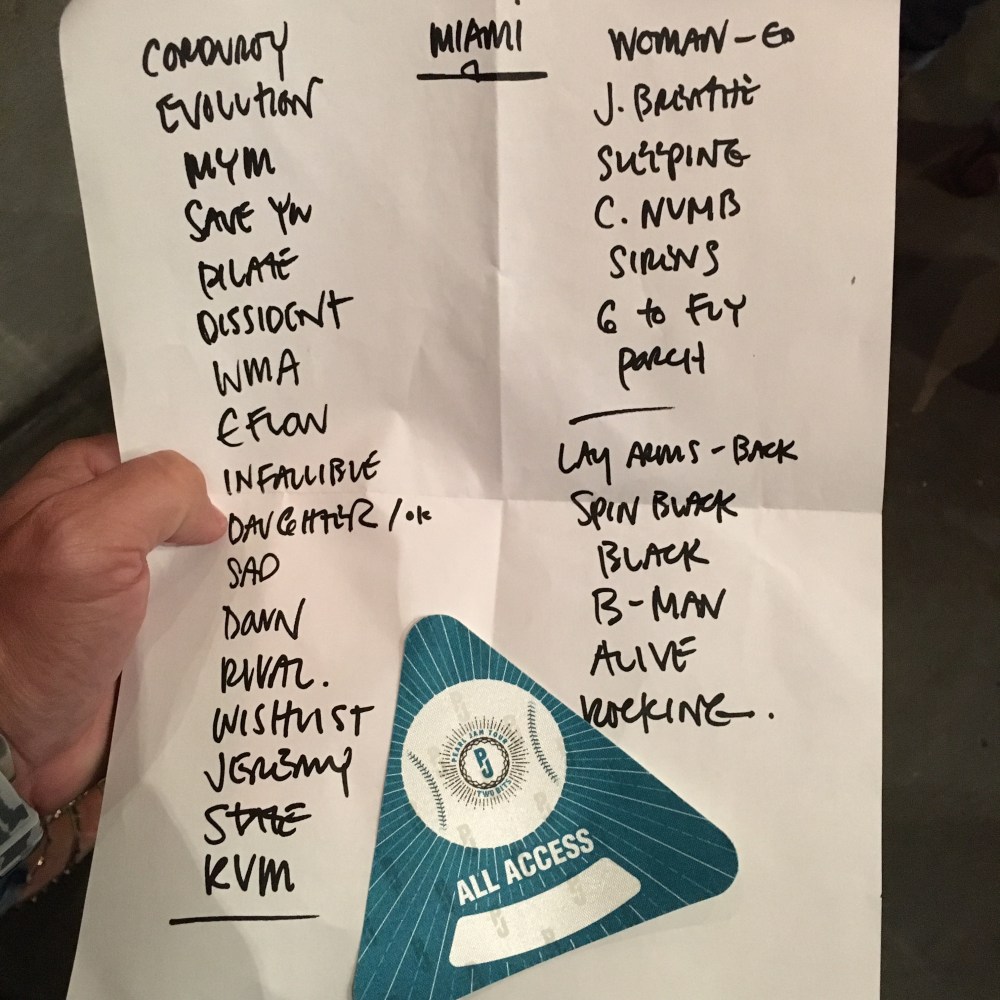 MIAMI
CORDUROY
EVOLUTION
MYM
SAVE YOU
PILATE
DISSIDENT
WMA
E FLOW
INFALLIBLE
DAUGHTER / OK
SAD
DAWN
RIVAL.
WISHLIST
JEREMY
STATE
RVM
WOMAN - ED
J. BREATHE
SLEEPING
C. NUMB
SIRENS
G to FLY
PORCH
LAY ARMS - BACK
SPIN BLACK
BLACK
B-MAN
ALIVE
ROCKING.
PEARL JAM TOUR
PJ
TWO BITS
ALL ACCESS